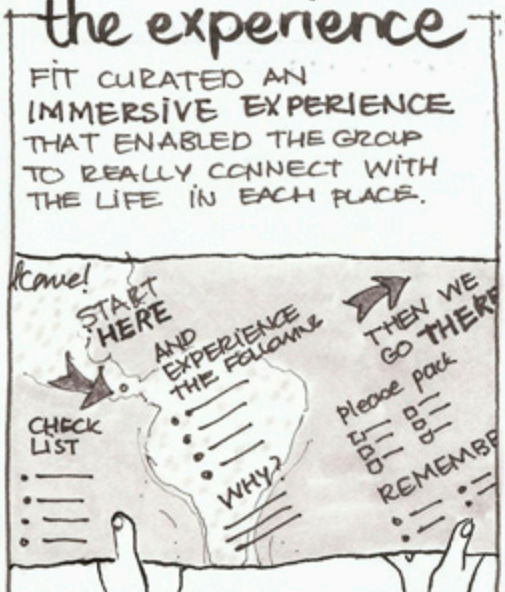 the experience
FIT CURATED AN
IMMERSIVE EXPERIENCE
THAT ENABLED THE GROUP
TO REALLY CONNECT WITH
THE LIFE IN EACH PLACE.
START
HERE
AND
EXPERIENCE
THE FOLLOWING
WHY?
CHECK
LIST
THEN WE
GO THERE
Please pack
REMEMBE